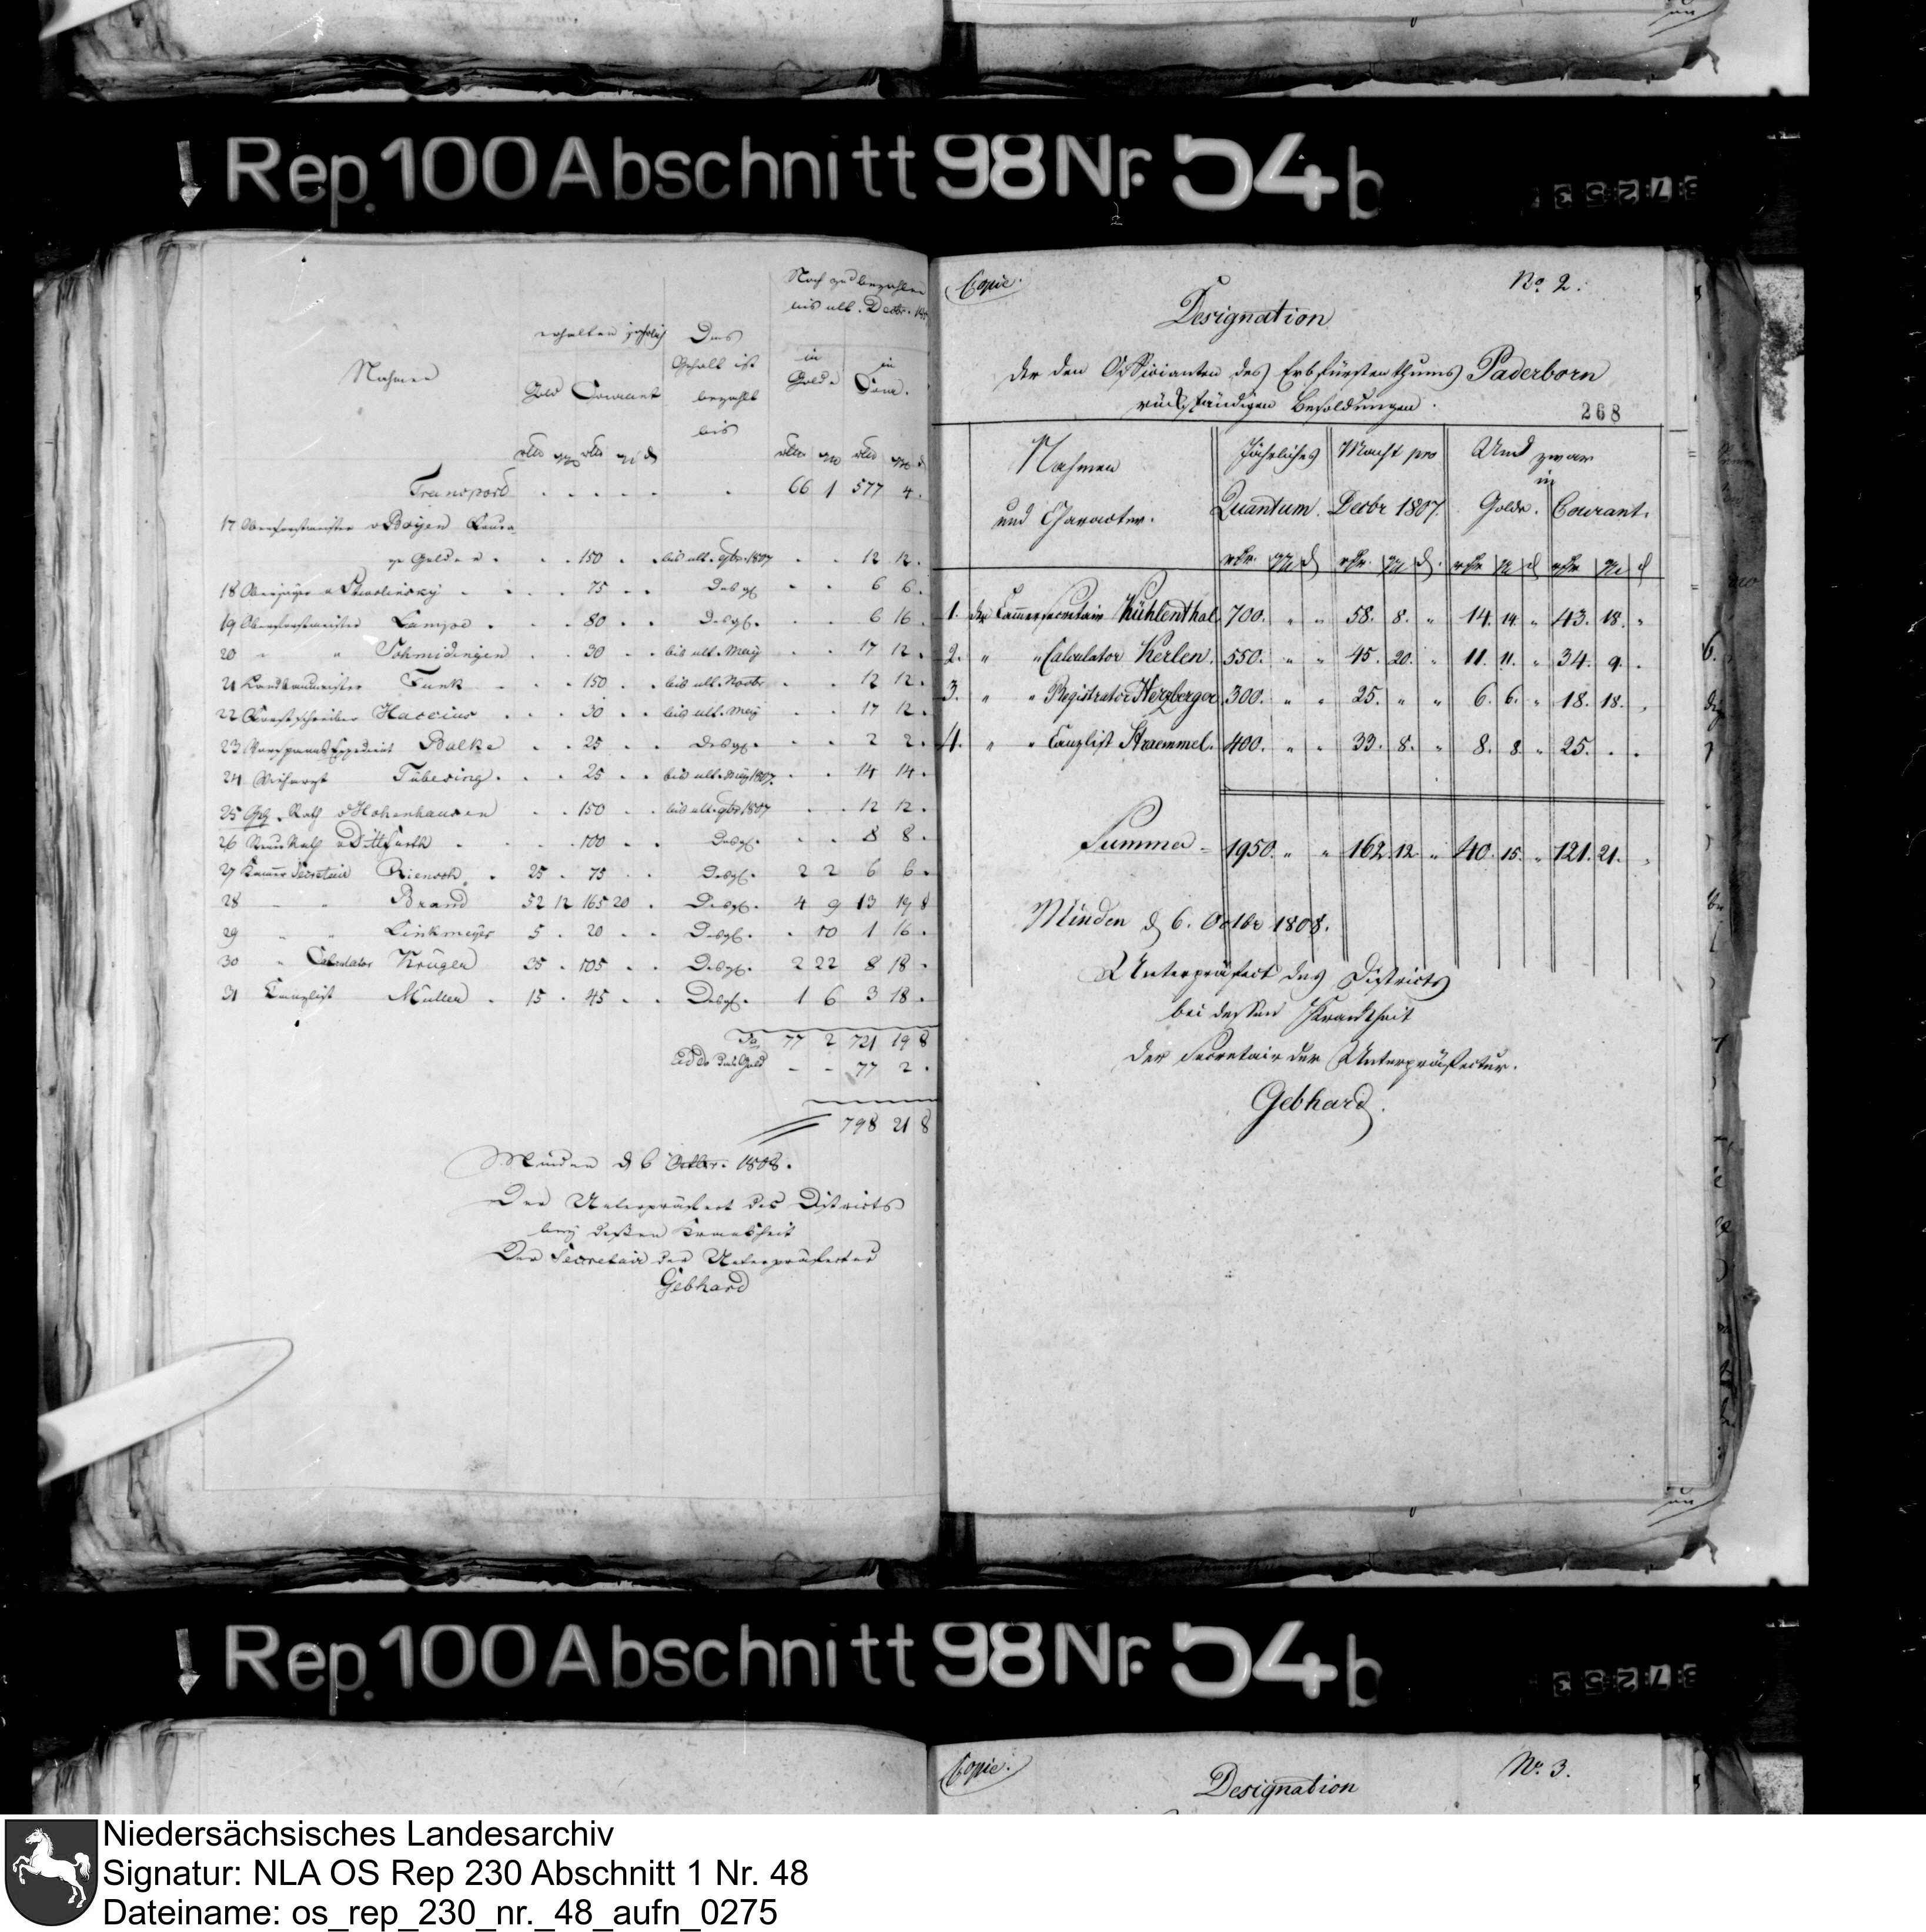 Rep. 100 Abschnitt 98 Nr. 54b
Noch zu bezahlen
bis ult. Decbr.
erhalten jährlich
Das
Gehalt ist
bezahlt
bis
in
Golde
in
Cour.
Nahmen
Gold Courant
Transport . . . . . . 66 1 577 4 .
17 Oberforstmeister v Boyen
. . 150 . . bis ult. 9br. 1807 . . 12 12 .
18 Oberjäger . . . 75 . . Desgl. . . 6 6 .
19 Oberforstmeister Lampe . . . 80 . . Desgl. . . 6 16 .
20 " " Schmidingen . . 30 . . bis ult. May . . 17 12 .
21 Landbaumeister Funk . . . 150 . . bis ult. Novbr . . 12 12 .
22 Haccius . . . 30 . . bis ult. May . . 17 12 .
23 Balke . . 25 . . Desgl. . . 2 2 .
24 Tübesing . . . 25 . . bis ult. May 1807 . . 14 14 .
25 Rath v Hohenhausen . . 150 . . bis ult. 9br. 1807 . . 12 12 .
26 Rath v Dittfurth . . . 100 . . Desgl. . . 8 8 .
27 Kammer Secretair Rienoch . 25 . 75 . . Desgl. 2 2 6 6 .
28 - " Brand 52 12 165 20 . Desgl. 4 9 13 19 8
29 " " Linkmeyer 5 . 20 . . Desgl. . 10 1 16 .
30 " Calculator Krüger 35 . 105 . . Desgl. 2 22 8 18 .
31 Canzlist Müller . 15 . 45 . . Desgl. 1 6 3 18 .
Sa. 77 2 721 19 8
das Gold - - 77 2 .
798 21 8
Minden d 6 Octbr. 1808.
Der Unterpräfect des Districts
bey deßen Krankheit
Der Secretair der Unterpräfectur
Gebhard
Copie.
No. 2.
Designation
der den Officianten des Erbfürstenthums Paderborn
rückständigen Besoldungen.
268
Nahmen
und Character.
Jährliches
Quantum.
Macht pro
Decbr 1807.
Und zwar
in
Golde. Courant.
1. der Cammersecretair Kühlenthal 700. " " 58. 8. " 14. 14. " 43. 18. "
2. " " Calculator Kerlen. 550. " " 45. 20. " 11. 11. " 34. 9. .
3. " " Registrator Herzberger 300. " " 25. " " 6. 6. " 18. 18. "
4. " " Canzlist Straemmel. 400. " " 33. 8. " 8. 8. " 25. . .
Summa - 1950. " " 162. 12. " 40. 15. " 121. 21. "
Minden d 6. Octbr 1808.
Unterpräfect des Districts
bei dessen Krankheit
der Secretair der Unterpräfectur.
Gebhard.
Rep. 100 Abschnitt 98 Nr. 54b
Copie.
No. 3.
Designation
Niedersächsisches Landesarchiv
Signatur: NLA OS Rep 230 Abschnitt 1 Nr. 48
Dateiname: os_rep_230_nr._48_aufn_0275